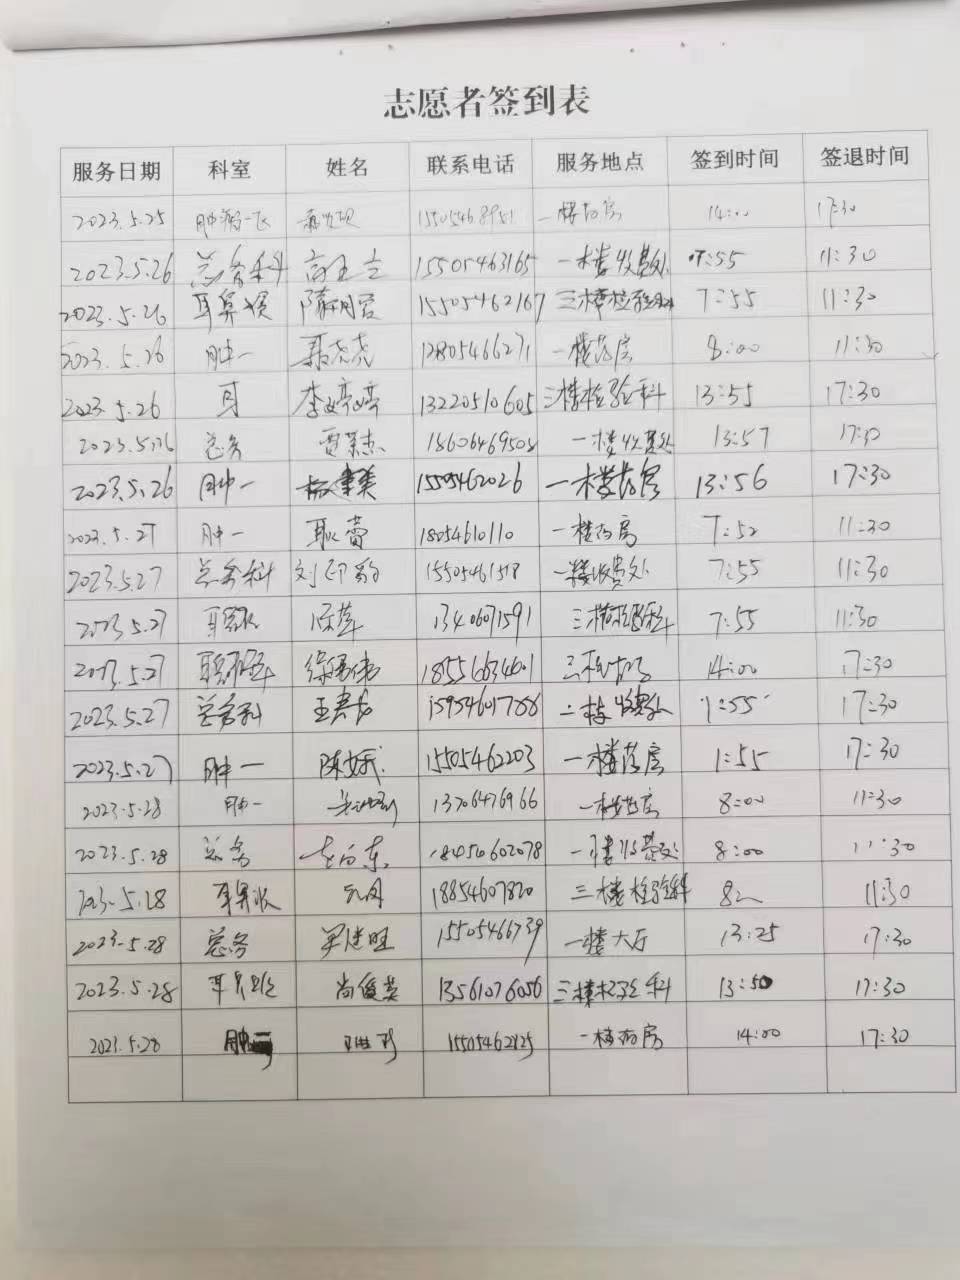 志愿者签到表
服务日期 科室 姓名 联系电话 服务地点 签到时间 签退时间
2023.5.25 一楼药房 14:00 17:30
2023.5.26 总务科 15505463165 一楼收费处 7:55 11:30
2023.5.26 耳鼻喉 15505462167 三楼检验科 7:55 11:30
2023.5.26 肿一 聂尧尧 12805466271 一楼药房 8:00 11:30
2023.5.26 耳 李婷婷 13220510605 三楼检验科 13:55 17:30
2023.5.26 总务 18606469508 一楼收费处 13:57 17:30
2023.5.26 肿一 15505462026 一楼药房 13:56 17:30
2023.5.27 肿一 耿蕾 18054610110 一楼药房 7:52 11:30
2023.5.27 总务科 15505461518 一楼收费处 7:55 11:30
2023.5.27 13406071591 三楼检验科 7:55 11:30
2023.5.27 14:00 17:30
2023.5.27 总务科 1:55 17:30
2023.5.27 肿一 15505462203 一楼药房 1:55 17:30
2023.5.28 肿一 13706476966 一楼药房 8:00 11:30
2023.5.28 总务 18454602078 一楼收费处 8:00 11:30
2023.5.28 耳鼻喉 18854607820 三楼检验科 11:30
2023.5.28 总务 15505466739 一楼大厅 13:25 17:30
2023.5.28 耳鼻喉 尚俊英 13561076056 三楼检验科 13:50 17:30
2023.5.28 肿一 15505462125 一楼药房 14:00 17:30